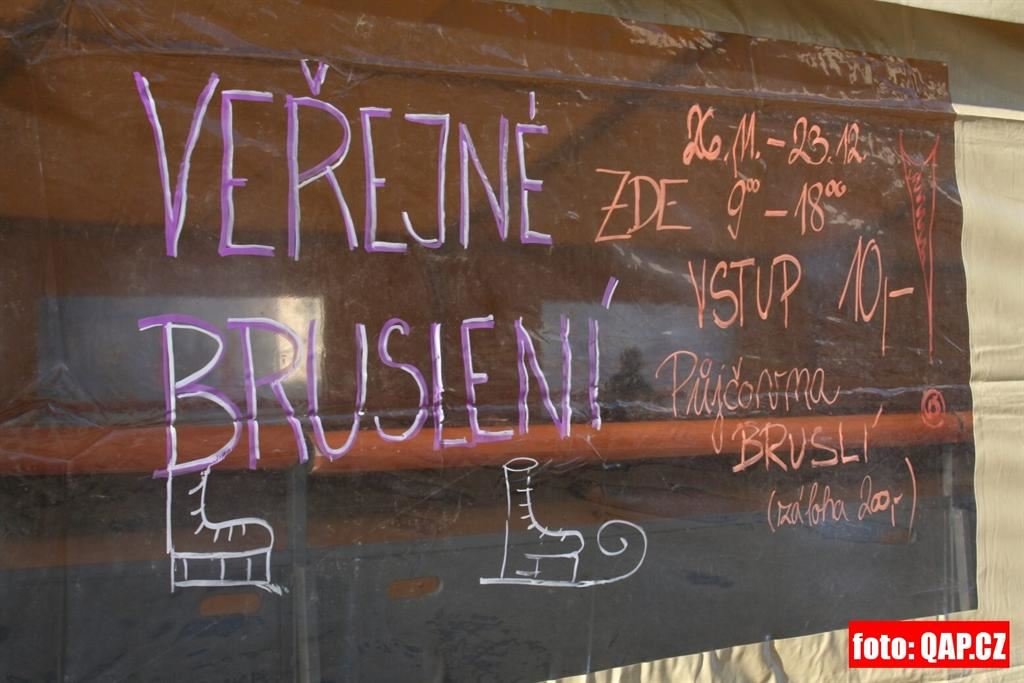 VEŘEJNÉ
BRUSLENÍ
26.11. - 23.12.
ZDE 9⁰⁰ - 18⁰⁰
VSTUP 10,-
Půjčovna
BRUSLÍ
(záloha 200,-)
foto: QAP.CZ